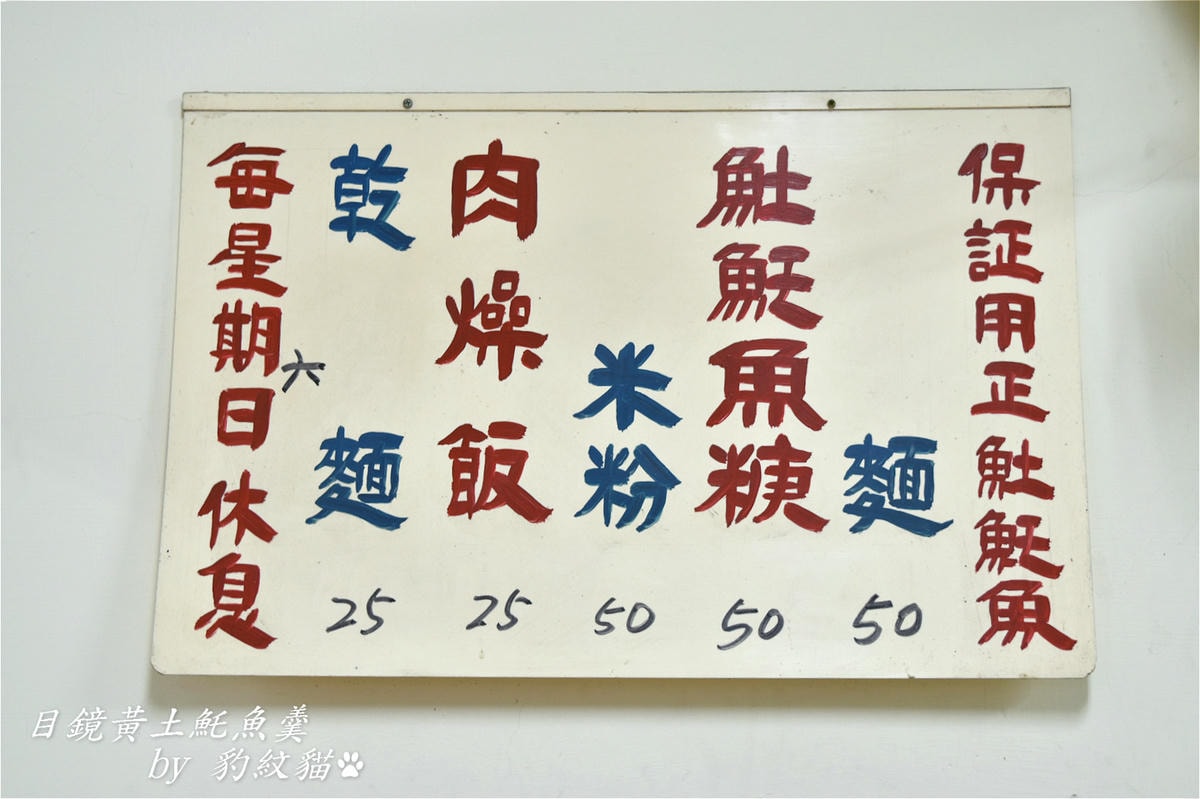 保証用正魠魚
麵
魠魚糠
米粉
肉燥飯
乾麵
每星期日六休息
25 25 50 50 50
目鏡黃土魠魚羹
by 豹紋貓